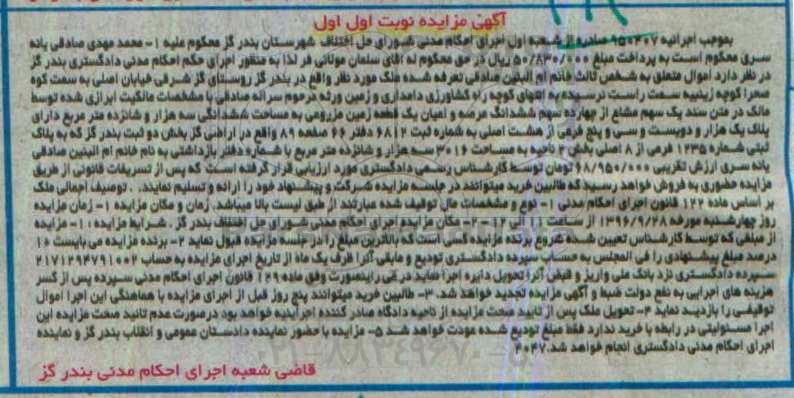 آگهی مزایده نوبت اول اول
بموجب اجرائیه ۹۵۰۴۰۷ صادره از شعبه اول اجرای احکام مدنی شورای حل اختلاف شهرستان بندر گز محکوم علیه ۱- محمد مهدی صادقی یانه
سری محکوم است به پرداخت مبلغ ۵۰/۸۳۰/۰۰۰ ریال در حق محکوم له آقای سلمان مولائی فر لذا به منظور اجرای حکم احکام مدنی دادگستری بندر گز
در نظر دارد اموال متعلق به شخص ثالث خانم ام البنین صادقی تعرفه شده ملک مورد نظر واقع در بندر گز روستای گز شرقی خیابان اصلی به سمت کوه
صحرا کوچه زینبیه سمت راست نرسیده به انتهای کوچه راه کشاورزی دامداری و زمین ورثه مرحوم سرائه صادقی با مشخصات مالکیت ابرازی شده توسط
مالک در متن سند یک سهم مشاع از چهارده سهم ششدانگ عرصه و اعیان یک قطعه زمین مزروعی به مساحت ششدانگی سه هزار و شانزده متر مربع دارای
پلاک یک هزار و دویست و سی و پنج فرعی از هشت اصلی به شماره ثبت ۶۸۱۲ دفتر ۶۶ صفحه ۸۹ واقع در اراضی گز بخش دو ثبت بندر گز که به پلاک
ثبتی شماره ۱۲۳۵ فرعی از ۸ اصلی بخش ۲ ناحیه به مساحت ۳۰۱۶ سه هزار و شانزده متر مربع با شماره دفتر بازداشتی به نام خانم ام البنین صادقی
یانه سری ارزش تقریبی ۶۸/۹۵۰/۰۰۰ تومان توسط کارشناس رسمی دادگستری مورد ارزیابی قرار گرفته است که پس از تشریفات قانونی از طریق
مزایده حضوری به فروش خواهد رسید که طالبین خرید میتوانند در جلسه مزایده شرکت و پیشنهاد خود را ارائه و تسلیم نمایند. . توصیف اجمالی ملک
بر اساس ماده ۱۲۲ قانون اجرای احکام مدنی نوع و مشخصات مال توقیف شده عبارتند از طبق لیست بالا میباشد. زمان و مکان مزایده ۱- زمان مزایده
روز چهارشنبه مورخه ۱۳۹۶/۹/۲۸ از ساعت الی ۱۲ ۲- مکان مزایده اجرای احکام مدنی شورای حل اختلاف بندر گز . شرایط مزایده : ۱- مزایده
از مبلغی که توسط کارشناس تعیین شده شروع برنده مزایده کسی است که بالاترین مبلغ را در جلسه مزایده قبول نماید ۲- برنده مزایده می بایست ۱۰
درصد مبلغ پیشنهادی را فی المجلس به حساب سپرده دادگستری تودیع و مابقی آنرا ظرف یک ماه از تاریخ اجرای مزایده به حساب ۲۱۷۱۲۹۴۷۹۱۰۰۲
سپرده دادگستری نزد بانک ملی واریز و قبض آنرا تحویل دایره اجرا نماید در غیر اینصورت وفق ماده ۱۲۹ قانون اجرای احکام مدنی سپرده پس از کسر
هزینه های اجرایی به نفع دولت ضبط و آگهی مزایده تجدید خواهد شد. ۳- طالبین خرید میتوانند پنج روز قبل از اجرای مزایده با هماهنگی این اجرا اموال
توقیفی را بازدید نماید ۴- تحویل ملک پس از تایید صحت مزایده از ناحیه دادگاه صادر کننده اجرائیه خواهد بود در صورت عدم تائید صحت مزایده این
اجرا مسئولیتی در رابطه با خرید ندارد فقط مبلغ تودیع شده عودت خواهد شد ۵- مزایده با حضور نماینده دادستان عمومی و انقلاب بندر گز و نماینده
اجرای احکام مدنی دادگستری انجام خواهد شد. ۴۰۴۷
قاضی شعبه اجرای احکام مدنی بندر گز